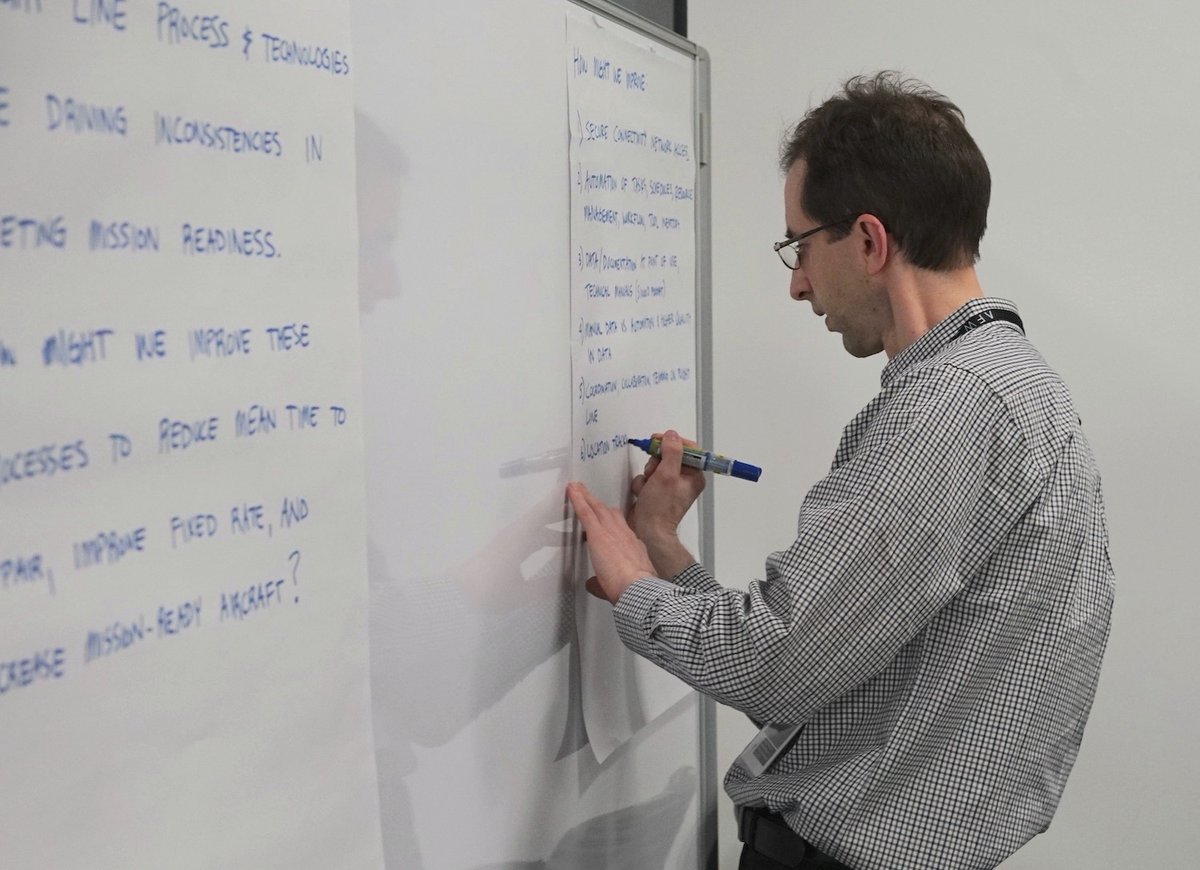 LINE PROCESS & TECHNOLOGIES
DRIVING INCONSISTENCIES IN
ETING MISSION READINESS.
MIGHT WE IMPROVE THESE
OCESSES TO REDUCE MEAN TIME TO
PAIR, IMPROVE FIXED RATE, AND
CREASE MISSION-READY AIRCRAFT?
HOW MIGHT WE IMPROVE
1) SECURE CONNECTIVITY NETWORK ACCESS,
2) AUTOMATION OF TASKS, SCHEDULES, RESOURCE
MANAGEMENT, WORKFLOW, TOOL
3) DATA/DOCUMENTATION AT POINT OF USE,
TECHNICAL MANUALS
4) MANUAL DATA VS AUTOMATION & HIGHER QUALITY
IN DATA
5) COORDINATION, COLLABORATION, ON FLIGHT
LINE
6) LOCATION TRACK
AF W